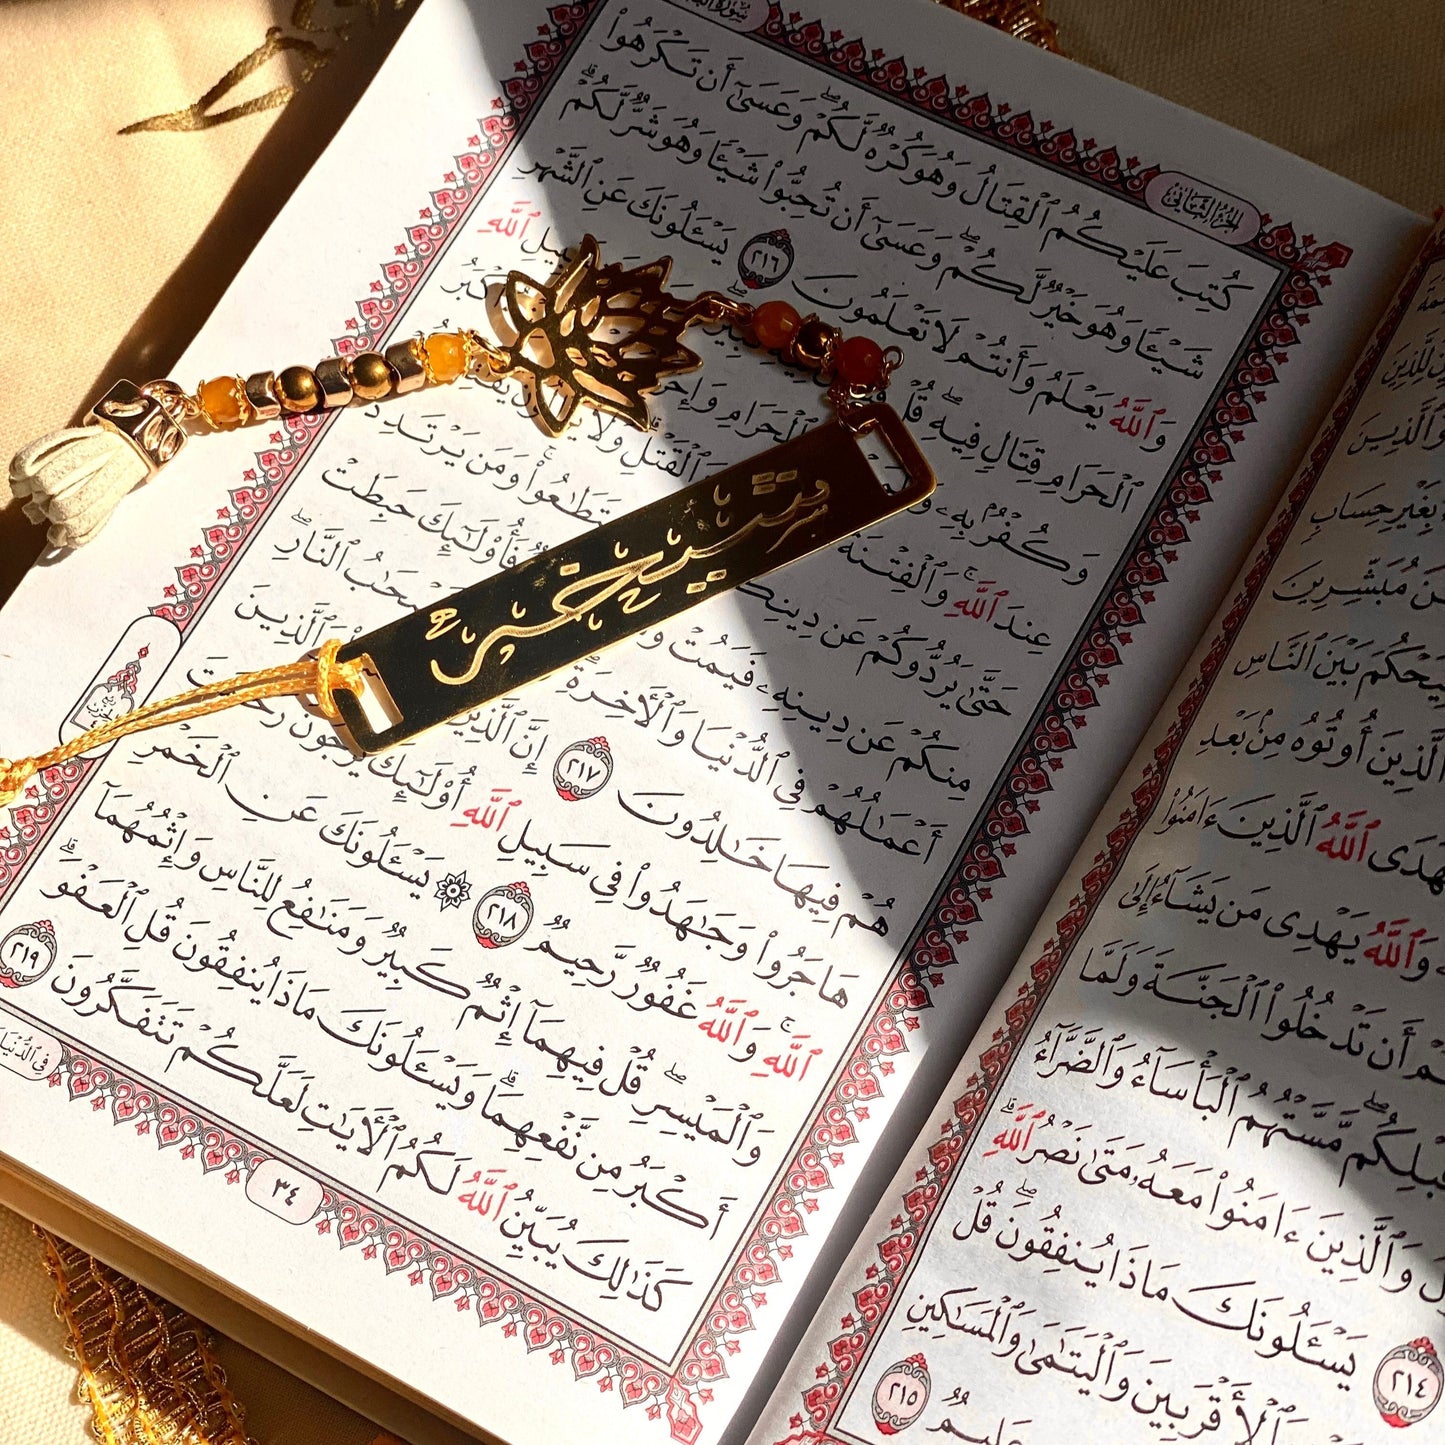 لِلَّذِينَ
وَٱلَّذِينَ
بِغَيْرِ حِسَابٍ
مُبَشِّرِينَ
لِيَحْكُمَ بَيْنَ ٱلنَّاسِ
ٱلَّذِينَ أُوتُوهُ مِنۢ بَعْدِ
فَهَدَى ٱللَّهُ ٱلَّذِينَ ءَامَنُوا۟
وَٱللَّهُ يَهْدِى مَن يَشَآءُ إِلَىٰ
أَن تَدْخُلُوا۟ ٱلْجَنَّةَ وَلَمَّا
قَبْلِكُم ۖ مَّسَّتْهُمُ ٱلْبَأْسَآءُ وَٱلضَّرَّآءُ
وَٱلَّذِينَ ءَامَنُوا۟ مَعَهُۥ مَتَىٰ نَصْرُ ٱللَّهِ ۗ
٢١٤ يَسْـَٔلُونَكَ مَاذَا يُنفِقُونَ ۖ قُلْ
وَٱلْأَقْرَبِينَ وَٱلْيَتَـٰمَىٰ وَٱلْمَسَـٰكِينِ
عَلِيمٌ ٢١٥
الجزء الثاني
كُتِبَ عَلَيْكُمُ ٱلْقِتَالُ وَهُوَ كُرْهٌ لَّكُمْ ۖ وَعَسَىٰٓ أَن تَكْرَهُوا۟
شَيْـًٔا وَهُوَ خَيْرٌ لَّكُمْ ۖ وَعَسَىٰٓ أَن تُحِبُّوا۟ شَيْـًٔا وَهُوَ شَرٌّ لَّكُمْ ۗ
وَٱللَّهُ يَعْلَمُ وَأَنتُمْ لَا تَعْلَمُونَ ٢١٦ يَسْـَٔلُونَكَ عَنِ ٱلشَّهْرِ
ٱلْحَرَامِ قِتَالٍ فِيهِ ۖ قُلْ كَبِيرٌ ۖ سَبِيلِ ٱللَّهِ
وَكُفْرٌۢ بِهِۦ ٱلْحَرَامِ وَإِخْرَاجُ أَكْبَرُ
عِندَ ٱللَّهِ ۚ وَٱلْفِتْنَةُ ٱلْقَتْلِ ۗ وَلَا
حَتَّىٰ يَرُدُّوكُمْ عَن دِينِكُمْ ٱسْتَطَـٰعُوا۟ ۚ وَمَن يَرْتَدِدْ
مِنكُمْ عَن دِينِهِۦ فَيَمُتْ فَأُو۟لَـٰٓئِكَ حَبِطَتْ
أَعْمَـٰلُهُمْ فِى ٱلدُّنْيَا وَٱلْـَٔاخِرَةِ ۖ أَصْحَـٰبُ ٱلنَّارِ ۖ
هُمْ فِيهَا خَـٰلِدُونَ ٢١٧ إِنَّ ٱلَّذِينَ وَٱلَّذِينَ
هَاجَرُوا۟ وَجَـٰهَدُوا۟ فِى سَبِيلِ ٱللَّهِ أُو۟لَـٰٓئِكَ يَرْجُونَ رَحْمَتَ
ٱللَّهِ ۚ وَٱللَّهُ غَفُورٌ رَّحِيمٌ ٢١٨ ۞ يَسْـَٔلُونَكَ عَنِ ٱلْخَمْرِ
وَٱلْمَيْسِرِ ۖ قُلْ فِيهِمَآ إِثْمٌ كَبِيرٌ وَمَنَـٰفِعُ لِلنَّاسِ وَإِثْمُهُمَآ
أَكْبَرُ مِن نَّفْعِهِمَا ۗ وَيَسْـَٔلُونَكَ مَاذَا يُنفِقُونَ قُلِ ٱلْعَفْوَ ۗ
كَذَٰلِكَ يُبَيِّنُ ٱللَّهُ لَكُمُ ٱلْـَٔايَـٰتِ لَعَلَّكُمْ تَتَفَكَّرُونَ ٢١٩
فِى ٱلدُّنْيَا
٣٤